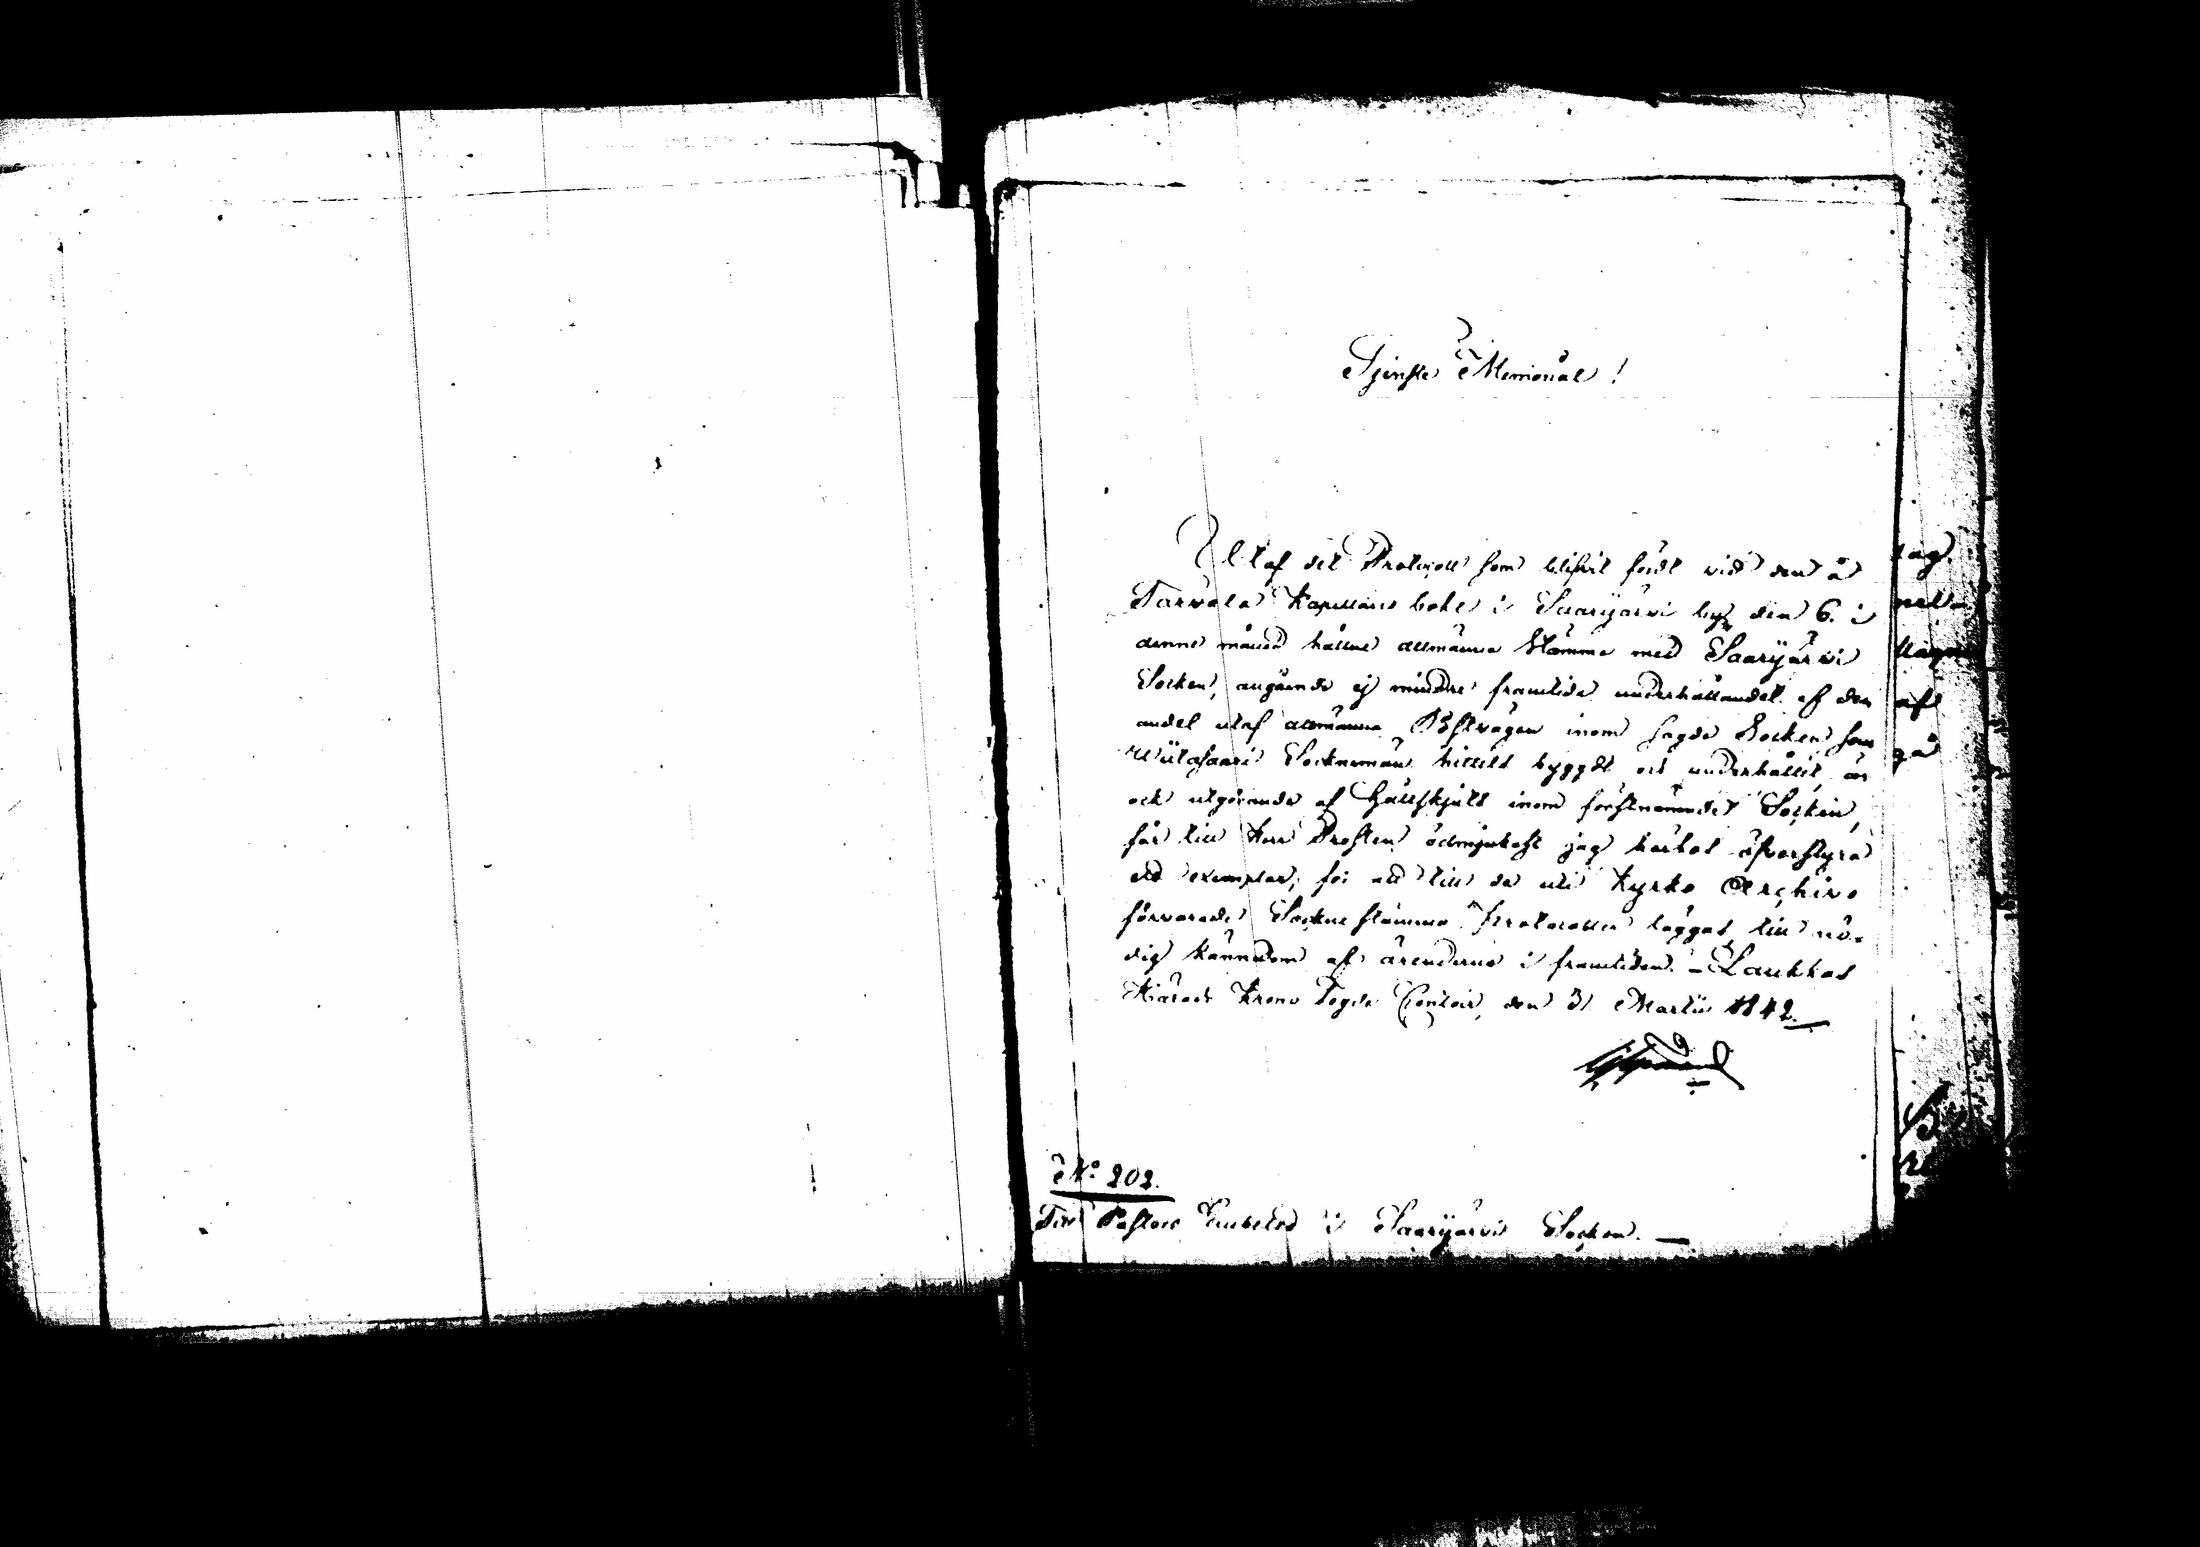 Tjenste Memorial!
Utaf det Protocoll som blifvit fördt vid den å
Tarvala Kapellans bohl i Saarijärvi by den 6. i
denne månad hållne allmänna Stämma med Saarijärvi
Socken, angående ej mindre framtida underhållandet af den
andel utaf allmänna Postvägen inom sagde Socken som
Wiitasaari Sockneman hittils byggdt och underhållit, än
ock utgörande af Hållskjuts inom förstnämnde Socken,
får till Herr Prosten ödmjukast jag härhos öfverstyra
ett exemplar, för att till de uti Kyrko Archivo
förvarade Sockne stämmo Protocoller läggas till nö-
dig kännedom af ärenderne i framtiden. - Laukkas
Härads Krono Fogde Contoir, den 31 Martii 1842.
No 202.
Till Pastors Embetet i Saarijärvi Socken.
tag
af
gå